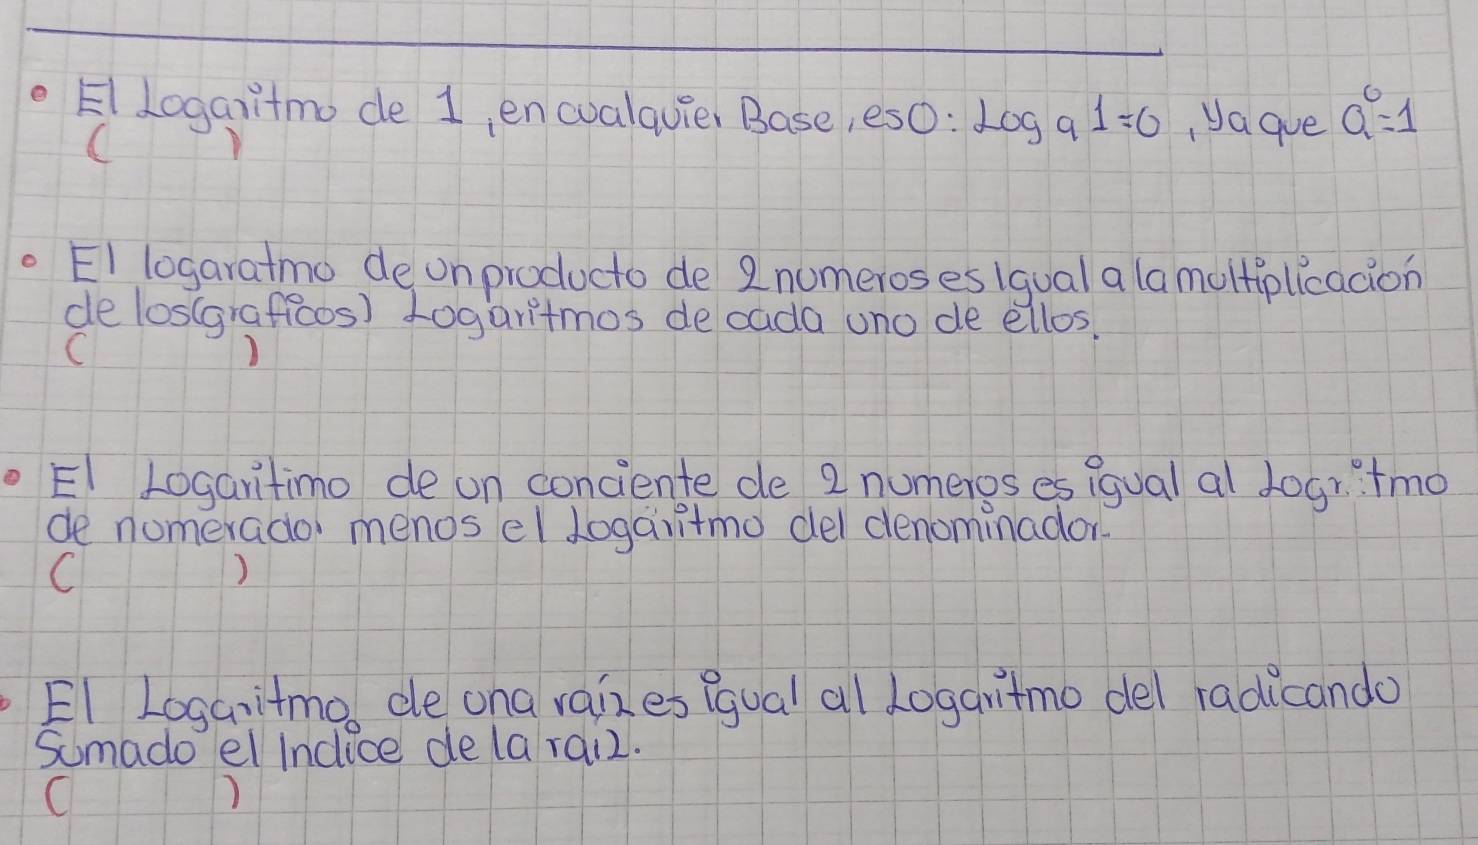 • El Logaritmo de 1, en cualquier Base, es 0: Log a 1=0, ya que a⁰=1
( )
• El logaratmo de un producto de 2 numeros es igual a la multiplicación
de los (graficos) Logaritmos de cada uno de ellos.
( )
• El Logaritimo de un conciente de 2 numeros es igual al Logritmo
de numerador menos el Logaritmo del denominador.
( )
• El Logaritmo de una raíz es igual al Logaritmo del radicando
Sumado el Indice de la raiz.
( )